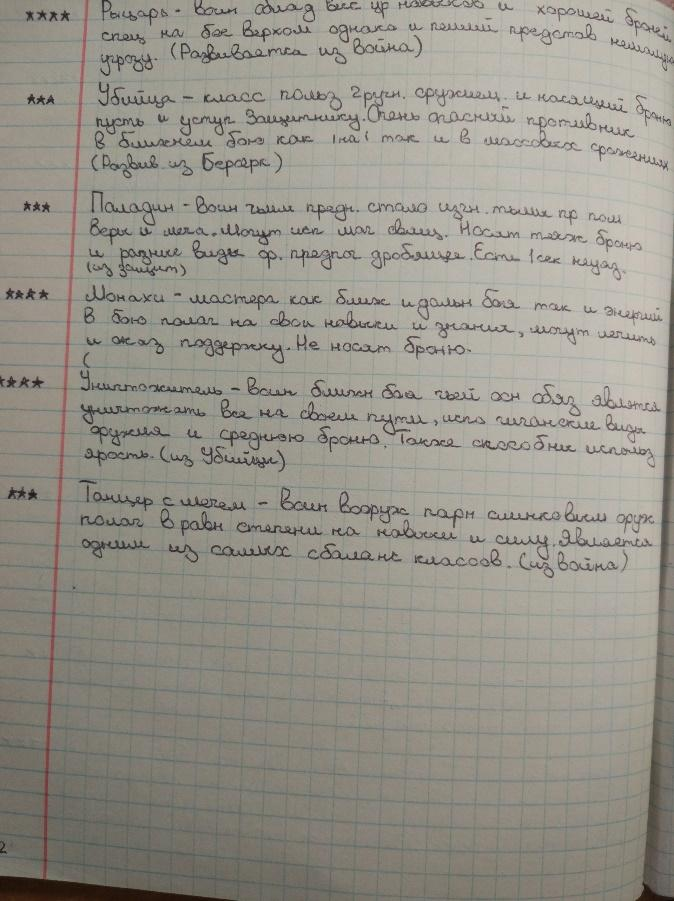 ★★★★ Рыцарь - Воин облад выс ур навыков и хорошей броней
спец на бое верхом однако и пеший представ немалую
угрозу. (Развивается из война)
★★★ Убийца - класс польз 2 ручн. оружием. и носящий броню
пусть и уступ Защитнику. Очень опасный противник
в ближнем бою как 1 на 1 так и в массовых сражениях
(Развив. из Берсерк)
★★★ Паладин - Воин чьим предн. стало изгн. тьмы пр пом
Веры и меча. Могут исп маг свящ. Носят тяж броню
и разные виды ор. предпоч дробящее. Есть 1 сек неуяз.
(из защит)
★★★★ Монахи - мастера как ближ и дальн боя так и энергий
В бою полаг на свои навыки и знания, могут лечить
и оказ поддержку. Не носят броню.
(
★★★★ Уничтожитель - Воин ближн боя чьей осн обяз является
уничтожать все на своем пути, испо гиганские виды
оружия и среднюю броню. Также способник использ
ярость. (из Убийцы)
★★★ Танцер с мечем - Воин вооруж парн клинковым оруж
полаг в равн степени на навыки и силу. Является
одним из самых сбаланс классов. (из война)
2